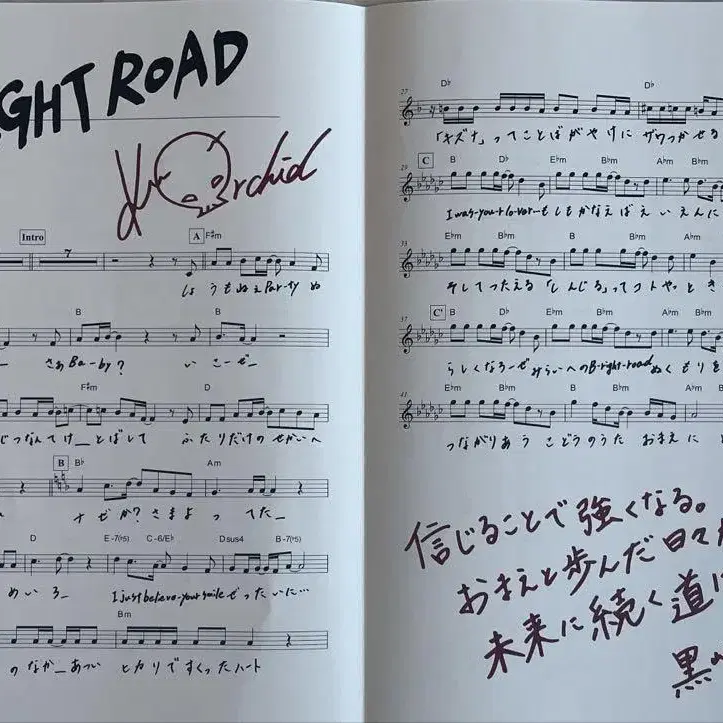 IGHT ROAD
Orchid
Intro
7
A F#m
しょうもねぇParty ぬ
B B
さあBa-by? いこーぜ_
F#m D
じつなんてけ_とばして ふたりだけのせかいへ
B B♭ Am
ナゼか?さまよってた_
D E-7(♭5) C-6/E♭ Dsus4 B-7(♭5)
めいろ_ I just believe-your smile ぜったいに…
Bm
のなか_あつい ヒカリですくったハート
27 D♭ D♭
「キズナ」ってことばがやけにザワつかせる
29 C B D♭ E♭m B♭m A♭m B♭m
I was-your-lo-ver-もしもかなえばえいえんに
33 E♭m B♭m B E♭m B♭m A♭m
そしてつたえる「しんじる」ってコトやっとき
37 C' B D♭ E♭m B♭m A♭m B♭m
らしくなろーぜみらいへのB-right-roadぬくもりを
41 E♭m B♭m B E♭m B♭m A♭m
つながりあうこどうのうた おまえに
信じることで強くなる。
おまえと歩んだ日々
未来に続く道
黒